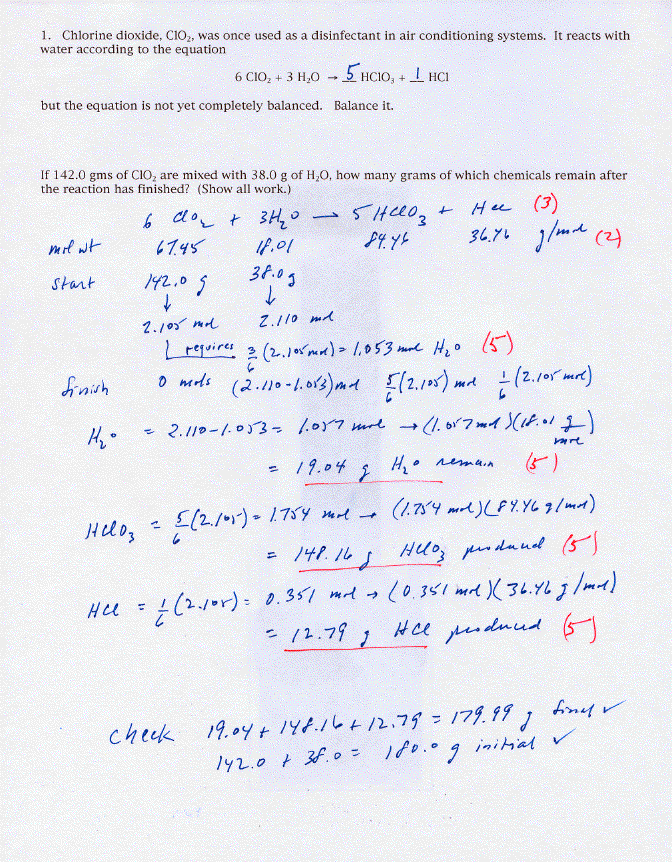 1. Chlorine dioxide, ClO₂, was once used as a disinfectant in air conditioning systems. It reacts with
water according to the equation
6 ClO₂ + 3 H₂O → 5 HClO₃ + 1 HCl
but the equation is not yet completely balanced. Balance it.
If 142.0 gms of ClO₂ are mixed with 38.0 g of H₂O, how many grams of which chemicals remain after
the reaction has finished? (Show all work.)
6 ClO₂ + 3H₂O → 5 HClO₃ + HCl (3)
mol wt 67.45 18.01 84.46 36.46 g/mol (2)
start 142.0 g 38.0 g
↓ ↓
2.105 mol 2.110 mol
requires 3/6 (2.105 mol) = 1.053 mol H₂O (5)
finish 0 mols (2.110-1.053) mol 5/6 (2.105) mol 1/6 (2.105 mol)
H₂O = 2.110-1.053 = 1.057 mol → (1.057 mol)(18.01 g/mol)
= 19.04 g H₂O remain (5)
HClO₃ = 5/6 (2.105) = 1.754 mol → (1.754 mol)(84.46 g/mol)
= 148.16 g HClO₃ produced (5)
HCl = 1/6 (2.105) = 0.351 mol → (0.351 mol)(36.46 g/mol)
= 12.79 g HCl produced (5)
check 19.04 + 148.16 + 12.79 = 179.99 g final ✓
142.0 + 38.0 = 180.0 g initial ✓